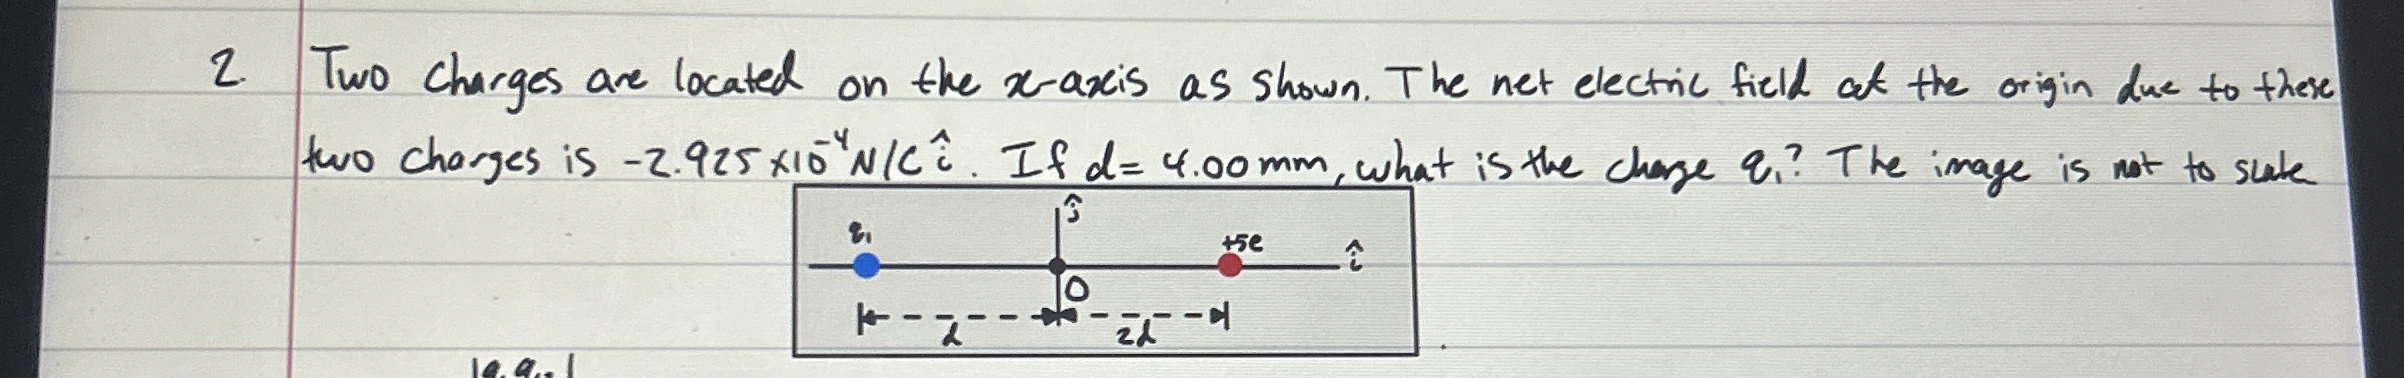 2. Two charges are located on the x-axis as shown. The net electric field at the origin due to these
two charges is -2.925 ×10⁻⁴ N/C î. If d= 4.00mm, what is the charge q₁? The image is not to scale
ĵ
q₁
+5e
î
O
d
2d